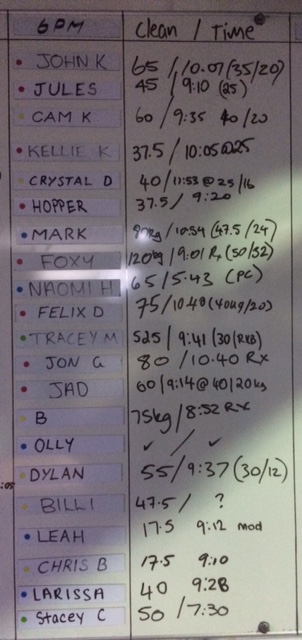 6PM Clean / Time
JOHN K 65 / 10.07 (35/20)
JULES 45 / 9:10 (25)
CAM K 60 / 9:35 40/20
KELLIE K 37.5 / 10:05@25
CRYSTAL D 40 / 11:53 @ 25/16
HOPPER 37.5 / 9:20
MARK 90kg / 10:54 (47.5/24)
FOXY 120kg / 9:01 Rx (50/32)
NAOMI H 65 / 5.43 (PC)
FELIX D 75 / 10.48 (40kg/20)
TRACEY M 52.5 / 9:41 (30/RKB)
JON G 80 / 10.40 RX
JAD 60 / 9:14 @ 40/20kg
B 75kg / 8:52 RX
OLLY ✓ / ✓
DYLAN 55 / 9:37 (30/12)
BILLI 47.5 / ?
LEAH 17.5 9:12 mod
CHRIS B 17.5 9:10
LARISSA 40 9:28
Stacey C 50 / 7:30